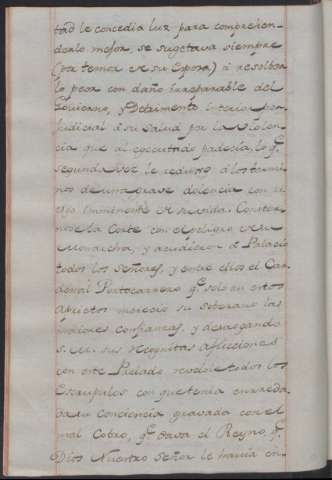 tad le concedia luz para comprehen-
derlo mejor, se sugetava siempre
(por temor de su Esposa) à resolber
lo peor con daño irreparable del
Govierno, y Detrimento interior per-
judicial à su salud por la violen-
cia que al executarlo padecia, lo q.e
segunda vez le reduxo à los termi-
nos de una grave dolencia con ri-
esgo imminente de su vida. Conster-
nose la Corte con el peligro de su
Monarcha, y acudieron à Palacio
todos los señores, y entre ellos el Car-
denal Portocarrero q.e solo en estos
Aprietos merecio su soberano las
maiores confianzas, y desaogando
S. M. sus reconditas aflicciones
con este Prelado, revelole todos los
Escrupulos con que tenia enreda-
da su Conciencia gravada con el
mal Cobro, q.e dava el Reyno, q.e
Dios Nuestro Señor le havia en-